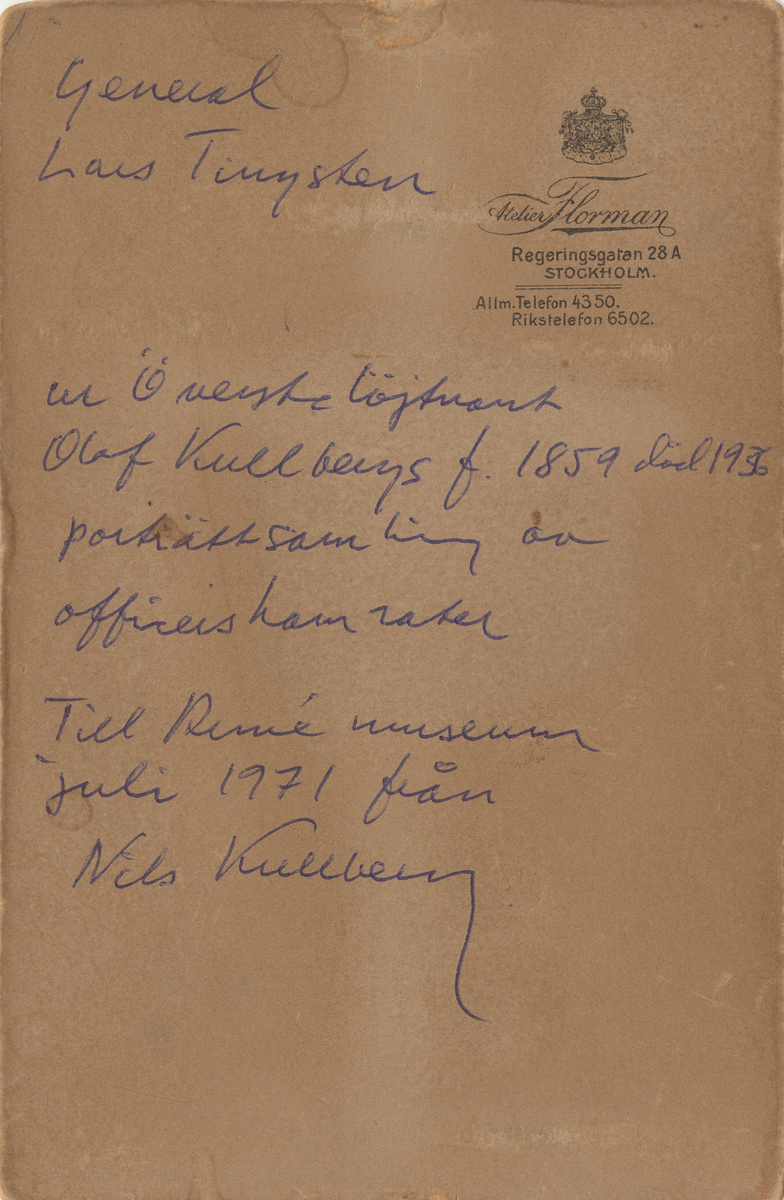 General
Lars Tingsten
Atelier Florman
Regeringsgatan 28 A
STOCKHOLM.
Allm. Telefon 43 50.
Rikstelefon 65 02.
ur Överste löjtnant
Olof Kullbergs f. 1859 död 1936
porträttsamling av
officerskamrater
Till Armé museum
juli 1971 från
Nils Kullberg